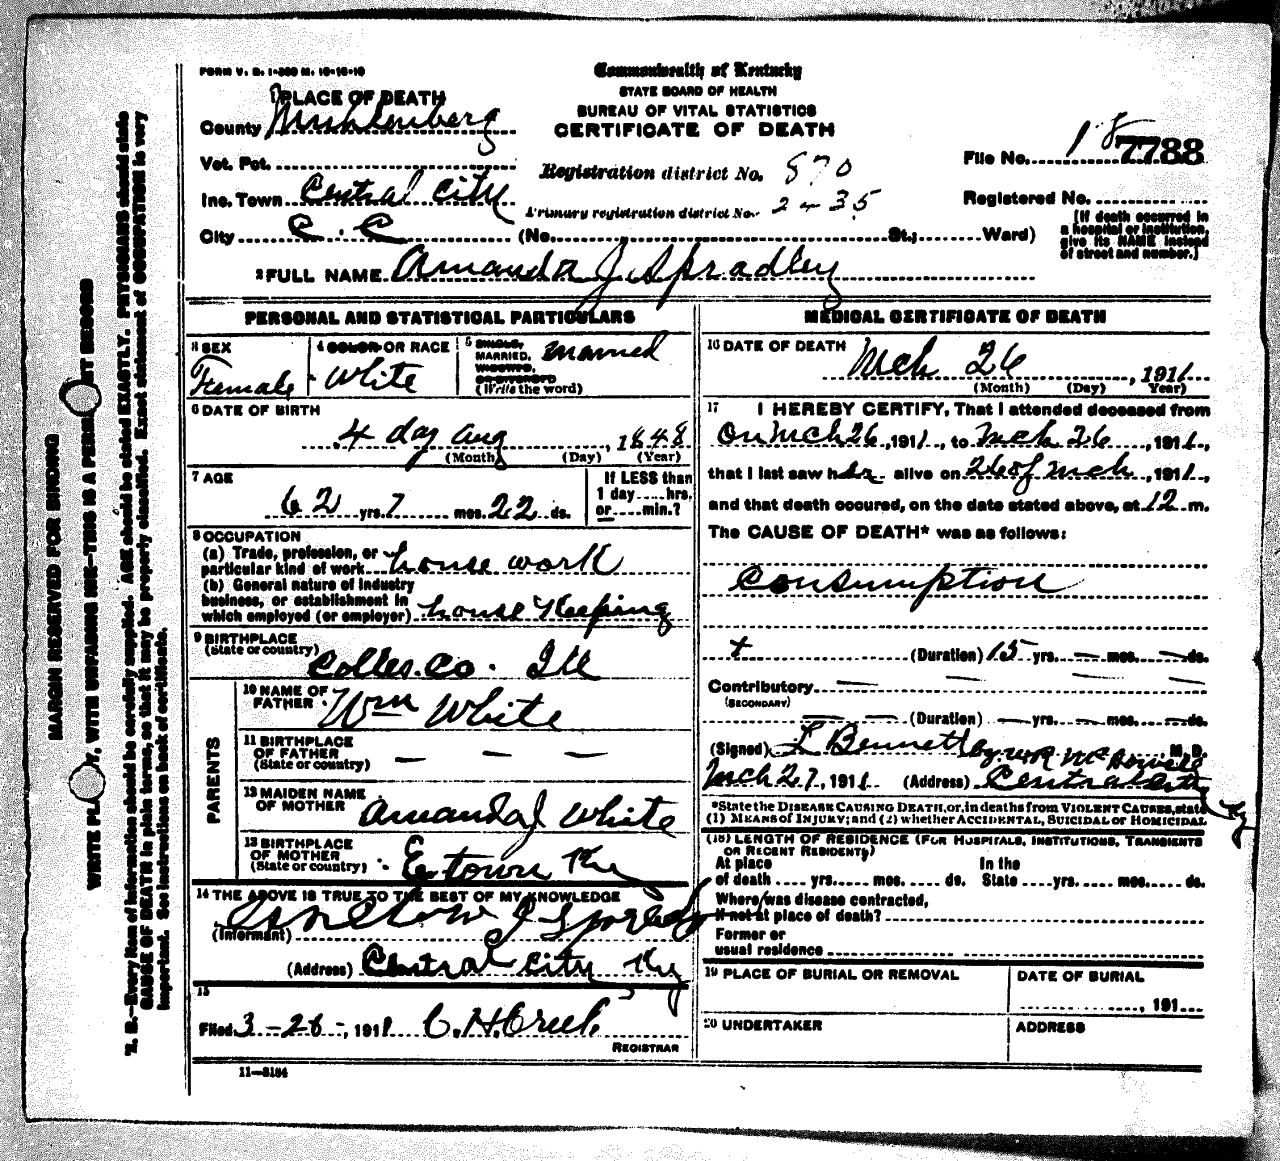 FORM V. S. 1-300 M. 10-10-10
Commonwealth of Kentucky
STATE BOARD OF HEALTH
BUREAU OF VITAL STATISTICS
CERTIFICATE OF DEATH
1 PLACE OF DEATH
County Muhlenberg
Vot. Pct.
Inc. Town Central City
City C. C (No. St.; Ward)
Registration district No. 870
Primary registration district No. 2435
File No. 18 7788
Registered No.
[If death occurred in
a hospital or institution,
give its NAME instead
of street and number.]
2 FULL NAME Amanda J Spradley
PERSONAL AND STATISTICAL PARTICULARS
3 SEX
Female
4 COLOR OR RACE
White
5 SINGLE,
MARRIED,
WIDOWED,
OR DIVORCED
(Write the word)
Married
6 DATE OF BIRTH
4 day Aug, 1848
(Month) (Day) (Year)
7 AGE
62 yrs. 7 mos. 22 ds.
If LESS than
1 day.....hrs.
or.....min.?
8 OCCUPATION
(a) Trade, profession, or
particular kind of work house work
(b) General nature of industry
business, or establishment in
which employed (or employer) house Keeping
9 BIRTHPLACE
(State or country) Colles. Co. Ill
PARENTS
10 NAME OF
FATHER Wm White
11 BIRTHPLACE
OF FATHER
(State or country) — — —
12 MAIDEN NAME
OF MOTHER Amanda J White
13 BIRTHPLACE
OF MOTHER
(State or country) E town Ky
14 THE ABOVE IS TRUE TO THE BEST OF MY KNOWLEDGE
(Informant) J Spradly
(Address) Central City Ky
15
Filed 3-26-, 1911 C. H. Creel
REGISTRAR
11—3184
MEDICAL CERTIFICATE OF DEATH
16 DATE OF DEATH
Mch 26, 1911
(Month) (Day) (Year)
17 I HEREBY CERTIFY, That I attended deceased from
on Mch 26, 1911, to Mch 26, 1911,
that I last saw her alive on 26 of Mch, 1911,
and that death occured, on the date stated above, at 12 m.
The CAUSE OF DEATH* was as follows:
Consumption
+ (Duration) 15 yrs. — mos. — ds.
Contributory — — — —
(SECONDARY)
— — (Duration) — yrs. — mos. — ds.
(Signed) L Bennett by W.R. McDowell M. D.
Mch 27, 1911 (Address) Central City Ky
*State the DISEASE CAUSING DEATH, or, in deaths from VIOLENT CAUSES, state
(1) MEANS of INJURY; and (2) whether ACCIDENTAL, SUICIDAL or HOMICIDAL
(18) LENGTH OF RESIDENCE (FOR HOSPITALS, INSTITUTIONS, TRANSIENTS
OR RECENT RESIDENTS)
At place
of death .... yrs..... mos. .... ds.
In the
State ....yrs..... mos..... ds.
Where was disease contracted,
if not at place of death?
Former or
usual residence
19 PLACE OF BURIAL OR REMOVAL
DATE OF BURIAL
, 191
20 UNDERTAKER
ADDRESS
MARGIN RESERVED FOR BINDING
WRITE PLA Y, WITH UNFADING INK—THIS IS A PERM ET RECORD
N. B.—Every item of information should be carefully supplied. AGE should be stated EXACTLY. PHYSICIANS should state
CAUSE OF DEATH in plain terms, so that it may be properly classified. Exact statement of OCCUPATION is very
important. See instructions on back of certificate.